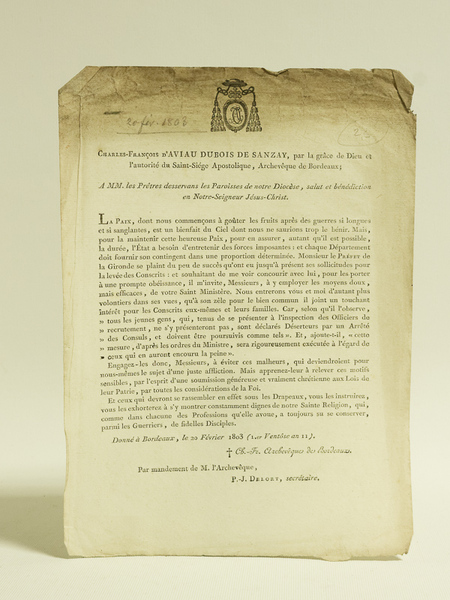 20 fév. 1803
23
CHARLES-FRANÇOIS D'AVIAU DUBOIS DE SANZAY, par la grâce de Dieu et
l'autorité du Saint-Siége Apostolique, Archevêque de Bordeaux;
A MM. les Prêtres desservans les Paroisses de notre Diocèse, salut et bénédiction
en Notre-Seigneur Jésus-Christ.
LA PAIX, dont nous commençons à goûter les fruits après des guerres si longues
et si sanglantes, est un bienfait du Ciel dont nous ne saurions trop le bénir. Mais,
pour la maintenir cette heureuse Paix, pour en assurer, autant qu'il est possible,
la durée, l'État a besoin d'entretenir des forces imposantes : et chaque Département
doit fournir son contingent dans une proportion déterminée. Monsieur le PRÉFET de
la Gironde se plaint du peu de succès qu'ont eu jusqu'à présent ses sollicitudes pour
la levée des Conscrits : et souhaitant de me voir concourir avec lui, pour les porter
à une prompte obéissance, il m'invite, Messieurs, à y employer les moyens doux,
mais efficaces, de votre Saint Ministère. Nous entrerons vous et moi d'autant plus
volontiers dans ses vues, qu'à son zèle pour le bien commun il joint un touchant
intérêt pour les Conscrits eux-mêmes et leurs familles. Car, selon qu'il l'observe,
» tous les jeunes gens, qui, tenus de se présenter à l'inspection des Officiers de
» recrutement, ne s'y présenteront pas, sont déclarés Déserteurs par un Arrêté
» des Consuls, et doivent être poursuivis comme tels ». Et, ajoute-t-il, « cette
» mesure, d'après les ordres du Ministre, sera rigoureusement exécutée à l'égard de
» ceux qui en auront encouru la peine ».
Engagez-les donc, Messieurs, à éviter ces malheurs, qui deviendroient pour
nous-mêmes le sujet d'une juste affliction. Mais apprenez-leur à relever ces motifs
sensibles, par l'esprit d'une soumission généreuse et vraiment chrétienne aux Lois de
leur Patrie, par toutes les considérations de la Foi.
Et ceux qui devront se rassembler en effet sous les Drapeaux, vous les instruirez,
vous les exhorterez à s'y montrer constamment dignes de notre Sainte Religion, qui,
comme dans chacune des Professions qu'elle avoue, a toujours su se conserver,
parmi les Guerriers, de fidelles Disciples.
Donné à Bordeaux, le 20 Février 1803 (1.er Ventôse an 11).
† Ch.-Fr. Archevêque de Bordeaux.
Par mandement de M. l'Archevêque,
P.-J. DELORT, secrétaire.